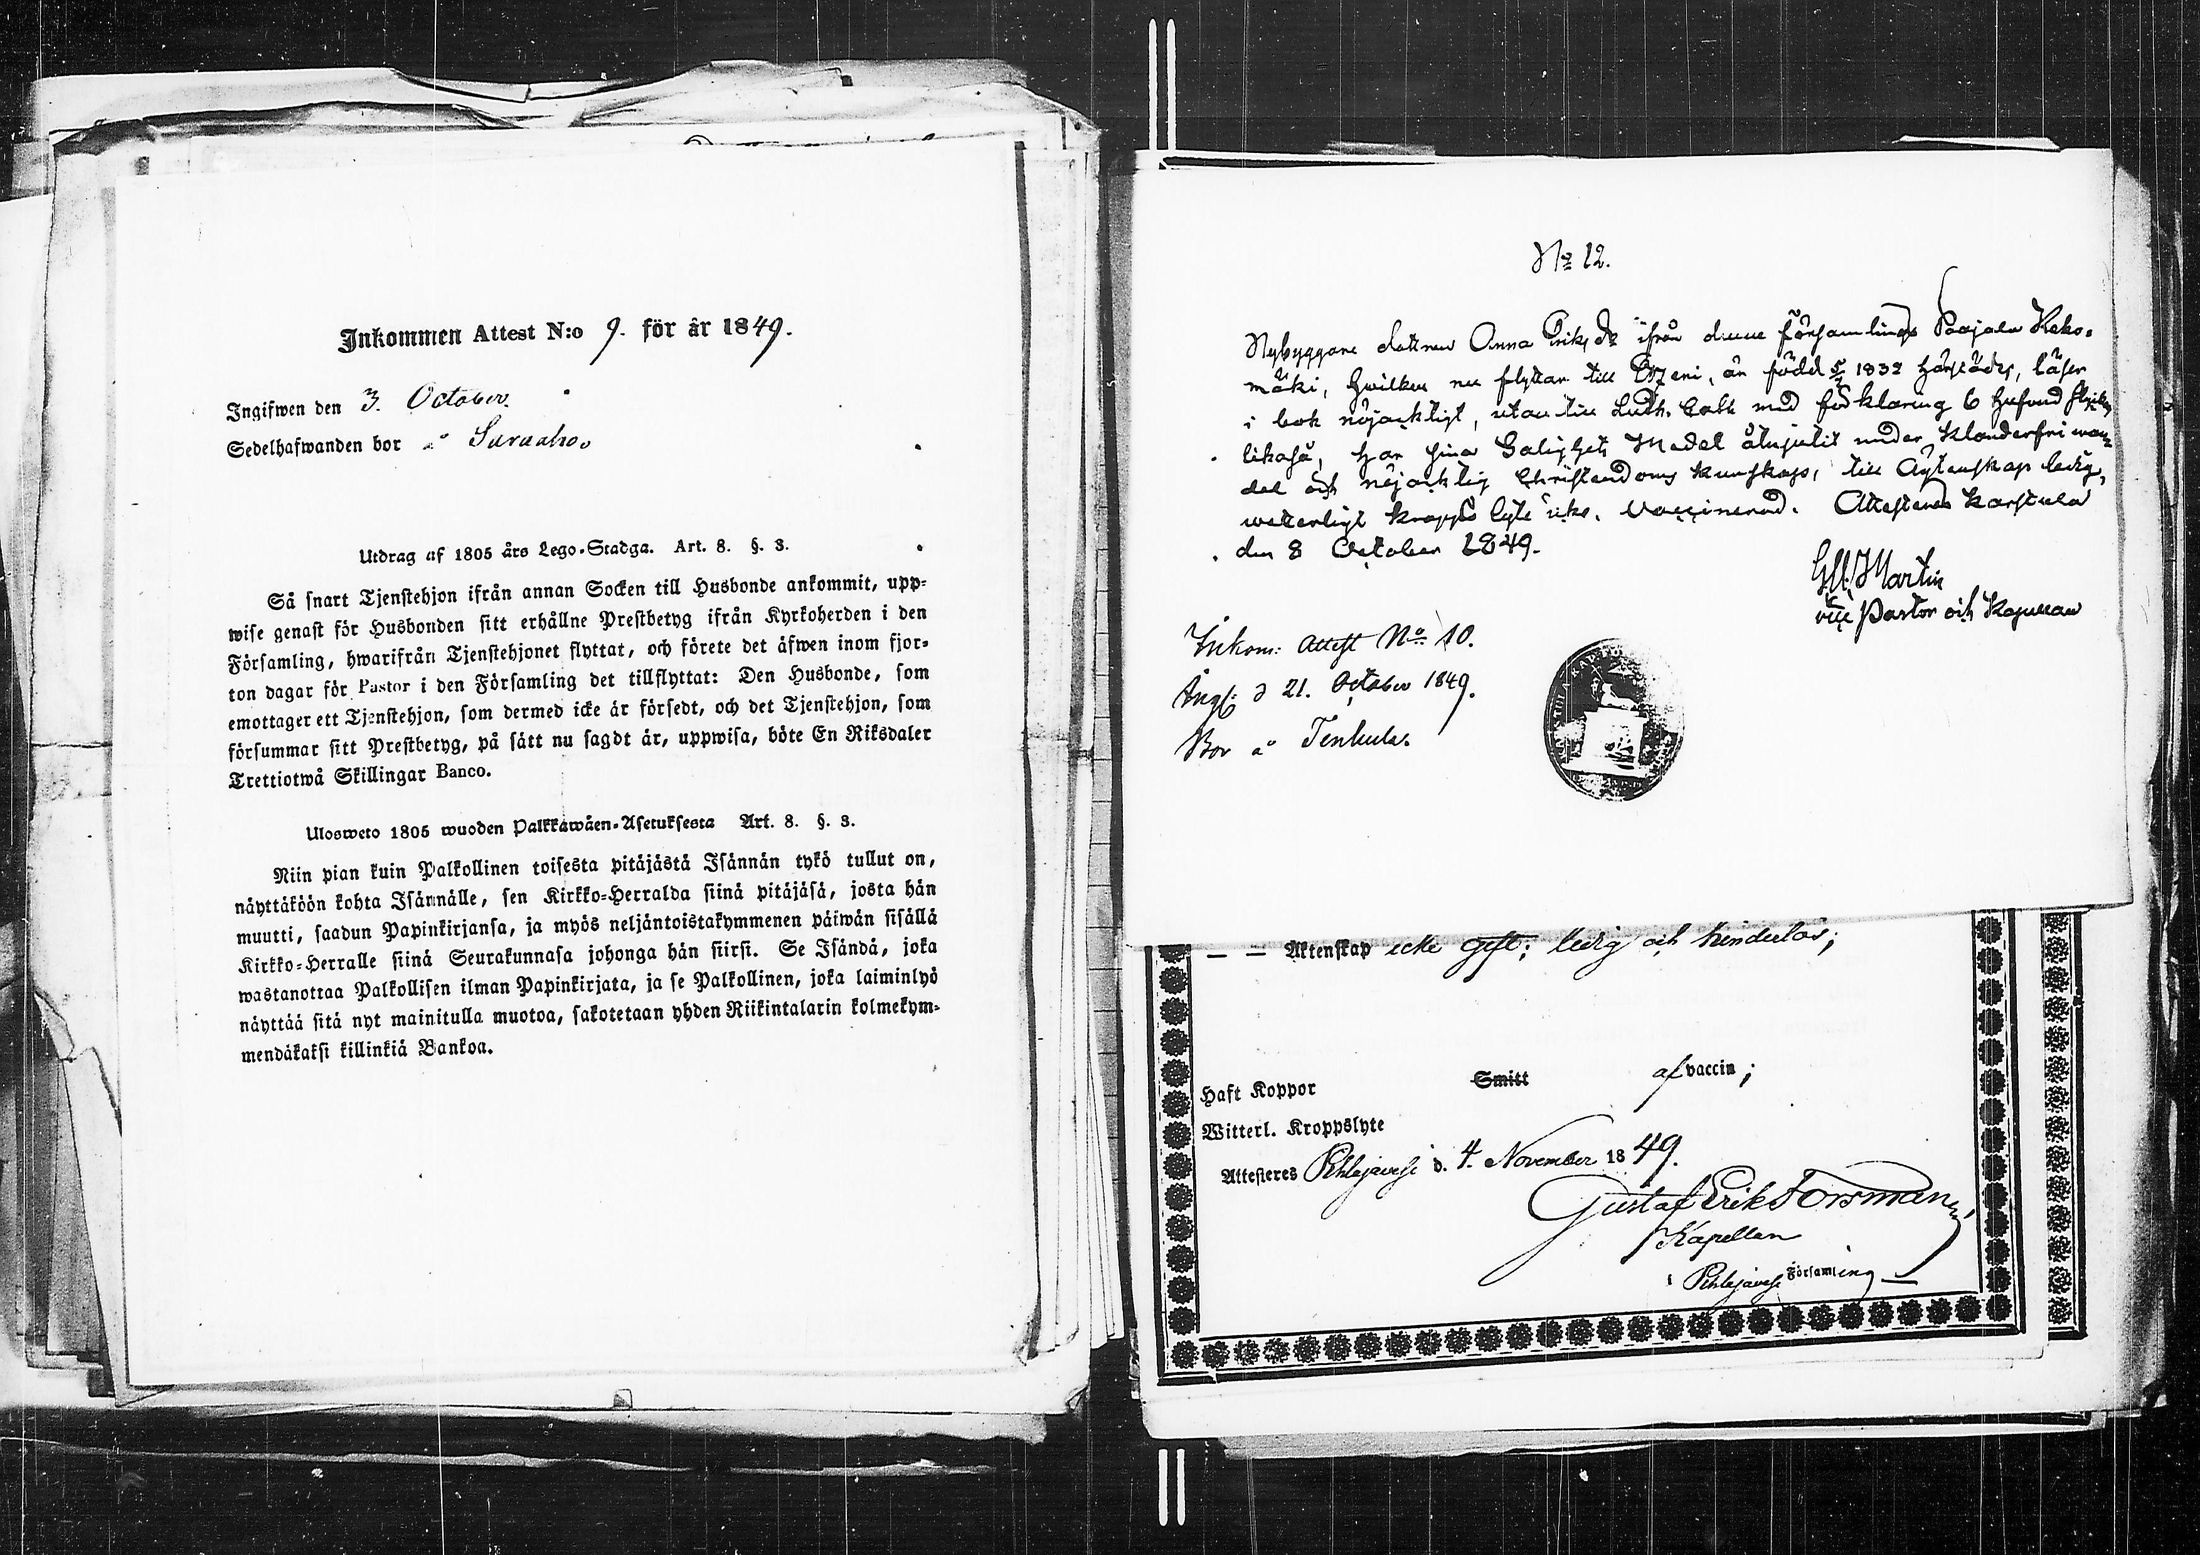 Inkommen Attest N:o 9. för år 1849.
Ingifwen den 3. October.
Sedelhafwanden bor å Suruaho.
Utdrag af 1805 års Lego-Stadga. Art. 8. §. 3.
Så snart Tjenstehjon ifrån annan Socken till Husbonde ankommit, upp-
wise genast för Husbonden sitt erhållne Prestbetyg ifrån Kyrkoherden i den
Församling, hwarifrån Tjenstehjonet flyttat, och förete det äfwen inom fjor-
ton dagar för Pastor i den Församling det tillflyttat: Den Husbonde, som
emottager ett Tjenstehjon, som dermed icke är försedt, och det Tjenstehjon, som
försummar sitt Prestbetyg, på sätt nu sagdt är, uppwisa, böte En Riksdaler
Trettiotwå Skillingar Banco.
Ulosweto 1805 wuoden Palkkawäen-Asetuksesta Art. 8. §. 3.
Niin pian kuin Palkollinen toisesta pitäjästä Isännän tykö tullut on,
näyttäköön kohta Isännälle, sen Kirkko-Herralda siinä pitäjäsä, josta hän
muutti, saadun Papinkirjansa, ja myös neljäntoistakymmenen päiwän sisällä
Kirkko-Herralle siinä Seurakunnasa johonga hän siirsi. Se Isändä, joka
wastanottaa Palkollisen ilman Papinkirjata, ja se Palkollinen, joka laiminlyö
näyttää sitä nyt mainitulla muotoa, sakotetaan yhden Riikintalarin kolmekym-
mendäkaksi killinkiä Bankoa.
No 12.
Nybyggare dottren Anna Eriksdr ifrån denne församlings Paajala Keko-
mäki, hwilken nu flyttar till Etzeri, är född 5/2 1832 härstädes, läser
i bok nöjacktigt, utan till Luth. Cat. med förklaring 6 hufvud stycken
likaså, har sina Salighets Medel åtnjutit under klanderfri wan-
del och nöjacktig Christendoms kunskap, till Äcktenskap ledig,
wetterligt kropps lyte icke. Vaccinerad. Attesteras Karstula
den 8 October 1849.
G. M. Martin
vice Pastor och Kapellan
Inkom: Attest No 10.
Ingf: d 21. October 1849.
Bor å Tenhula.
— — Äktenskap icke gift; ledig och hinderlös;
Haft Koppor Smitt af vaccin;
Witterl. Kroppslyte
Attesteres Pihlajavesi d. 4. November 1849.
Gustaf Erik Forsman,
Kapellan
i Pihlajavesi Församling —